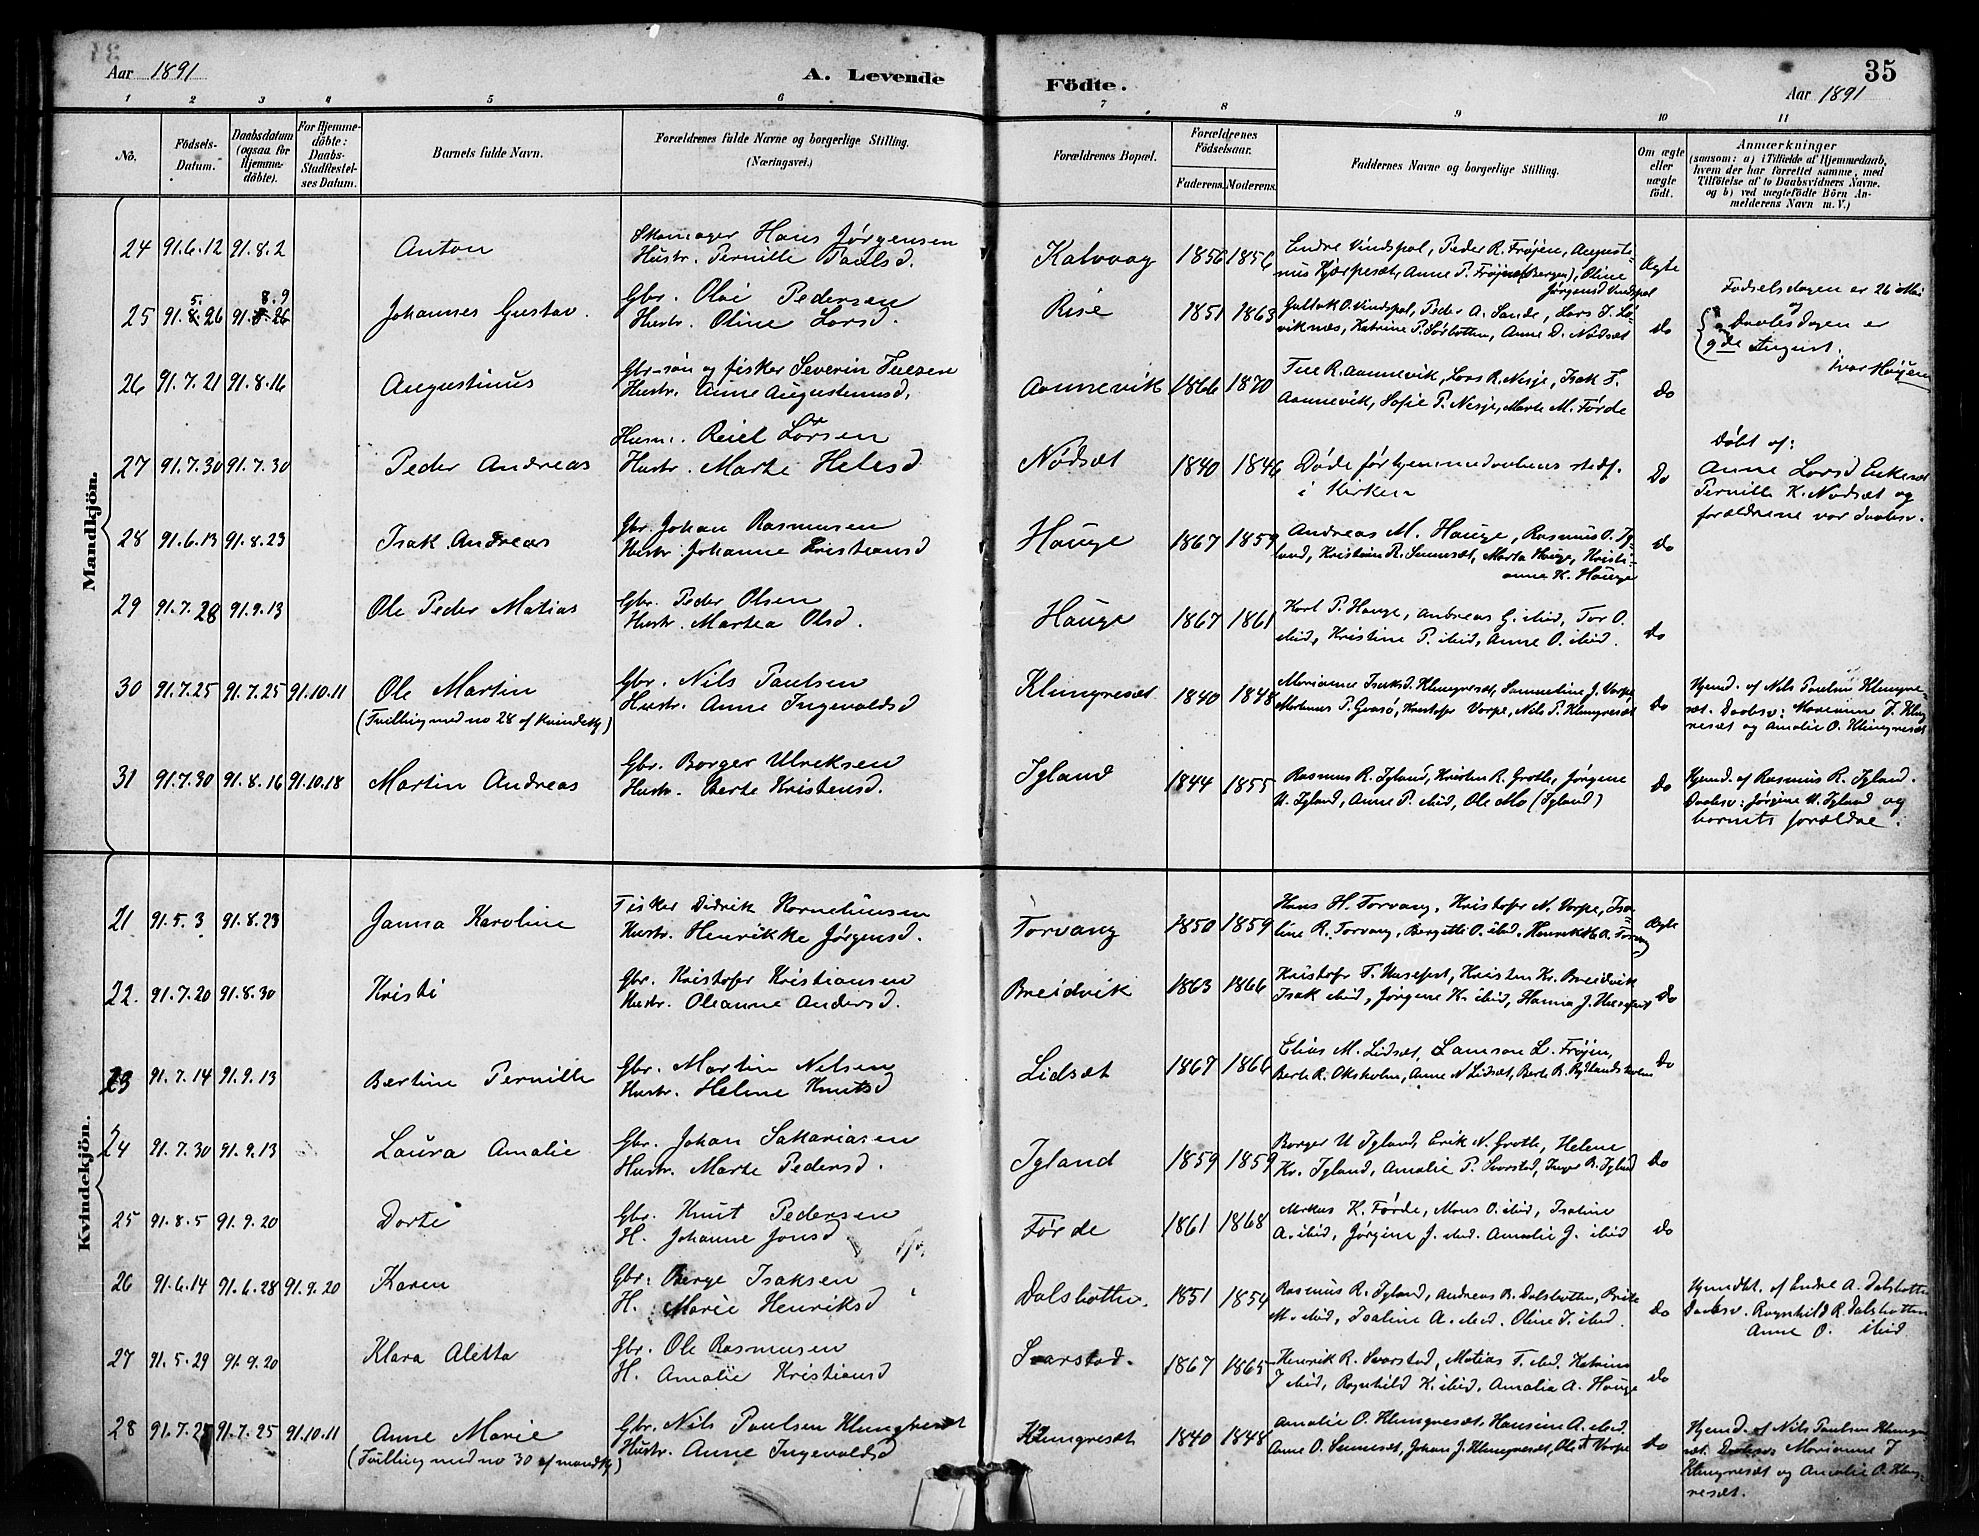 Aar 1891
A. Levende
Födte.
35
Aar 1891
1 2 3 4 5 6 7 8 9 10 11
No.
Födsels-
Datum.
Daabsdatum
(ogsaa for
Hjemme-
döbte).
For Hjemme-
döbte:
Daabs-
Stadfæstel-
ses Datum.
Barnets fulde Navn.
Forældrenes fulde Navne og borgerlige Stilling.
(Næringsvei.)
Forældrenes Bopæl.
Forældrenes
Födselsaar.
Faderens.
Moderens.
Faddernes Navne og borgerlige Stilling.
Om ægte
eller
uægte
födt.
Anmærkninger
(saasom: a) i Tilfælde af Hjemmedaab,
hvem der har forrettet samme, med
Tilföielse af to Daabsvidners Navne.
og b) ved uægtefödte Börn An-
melderens Navn m. V.)
Mandkjön.
24 91.6.12 91.8.2 Anton
Skomager Hans Jørgensen
Hustr. Pernille Paulsd.
Kalvaag 1856 1856
Endre Vindspol, Peder R. Frøjen, Auguste-
nus Hjærpesæt, Anne P. Frøjen (Bergen), Oline
Jørgensd Vindspol
Ægte
25 91.5.26 91.8.9 Johannes Gustav.
Gbr. Olai Pedersen
Hustr. Oline Larsd.
Rise 1851 1863
Gullak O. Vindspol, Peder A. Sande, Lars S. Lø-
viknæs, Katrine P. Sørbotten, Anne D. Nødsæt
do
Fødselsdagen er 26 Mai
og
Daabsdagen er
9de August.
Ivar Høyem
26 91.7.21 91.8.16 Augustinus
Gbr.søn og fisker Severin Tuesen
Hustr. Anne Augustinusd.
Aannevik 1866 1870
Tue R. Aannevik, Lars R. Nesje, Isak T.
Aannevik, Sofie P. Nesje, Marte M. Førde
do
27 91.7.30 91.7.30 Peder Andreas
Husm. Reiel Larsen
Hustr. Marte Helesd
Nødsæt 1840 1846
Døde før hjemmedaabens stadf.
i Kirken
Do
Døbt af:
Anne Larsd
Pernille K. Nødsæt og
forældrene var daabsv.
28 91.6.13 91.8.23 Isak Andreas
Gbr. Johan Rasmusen
Hustr Johanne Kristiansd
Hauge 1867 1859
Andreas M. Hauge, Rasmus O. Ig-
land, Kristian R. Sunnsæt, Marta Hauge, Kristi-
anne K. Hauge
do
29 91.7.28 91.9.13 Ole Peder Matias
Gbr. Peder Olsen
Hustr. Martea Olsd.
Hauge 1867 1861
Karl P. Hauge, Andreas G. ibid, Tor O.
ibid, Kristine P. ibid, Anne O. ibid.
do
30 91.7.25 91.7.25 91.10.11 Ole Martin
(Tvilling med no 28 af kvindekj)
Gbr. Nils Paulsen
Hustr. Anne Ingevaldsd
Klungresæt 1840 1848
Marianne Isaksd. Klungresæt, Samueline J. Vorpe,
Martinus P. Gaasø, Kristofer Vorpe, Nils P. Klungresæt
Do
Hjemd. af Nils Paulsen Klungre-
sæt. Daabsv: Marianne J. Klung
resæt og Amalie O. Klungresæt
31 91.7.30 91.8.16 91.10.18 Martin Andreas
Gbr. Borger Ulriksen
Hustr. Berte Kristensd.
Igland 1844 1855
Rasmus R. Igland, Kristen R. Grotle, Jørgine
U. Igland, Anne P. ibid, Ole Mo (Igland)
Do
Hjemd. af Rasmus R. Igland.
Daabsv: Jørgine U. Igland og
barnets forældre.
Kvindekjön.
21 91.5.3 91.8.23 Janna Karoline
Fisker Didrik Korneliussen
Hustr. Henrikke Jørgensd.
Torvang 1850 1859
Hans H. Torvang, Kristofer N. Vorpe, Isa-
line R. Torvang, Bergitte O. ibid, Henrikke A. Torvang
Ægte
22. 91.7.20 91.8.30 Kristi
Gbr. Kristofer Kristiansen
Hustr. Oleanne Andersd.
Breidvik 1863 1866
Kristofer T. Husefest, Kristen Kr. Breidvik
Isak ibid, Jørgine Kr. ibid, Hanna J. Husefest
Do
23 91.7.14 91.9.13 Bertine Pernille
Gbr. Martin Nilsen
Hustr. Heline Knutsd
Lidsæt 1867 1866
Elias M. Lidsæt, Samson L. Frøjen,
Berte R. Oksholm, Anne N Lidsæt, Berte R. Rylandsholm
Do
24 91.7.30 91.9.13 Laura Amalie
Gbr. Johan Sakariasen
Hustr. Marte Pedersd.
Igland 1859 1859
Borger U Igland, Erik N. Grotle, Helene
Kr. Igland, Amalie P. Svarstad, Inger R. Igland
Do
25 91.8.5 91.9.20 Dorte
Gbr. Knut Pedersen
H. Johanne Jonsd
Førde 1861 1868
Markus K. Førde, Mons O. ibid, Isaline
A. ibid, Jørgine J. ibid. Amalie J. ibid
do
26 91.6.14 91.6.28 91.9.20 Karen
Gbr: Berge Isaksen
H. Marie Henriksd
Dalsbotten. 1851 1854
Rasmus R. Igland, Andreas B. Dalsbotten, Brite
M. ibid, Isaline A. ibid. Oline I. ibid.
Do
Hjemdbt. af Endre A. Dalsbotten
Daabsv. Ragnhild R. Dalsbotten
Anne O. ibid
27 91.5.29 91.9.20 Klara Aletta
Gbr. Ole Rasmusen
H. Amalie Kristiansd
Svarstad. 1867 1865
Henrik R. Svarstad, Matias T. ibid. Katrine
J ibid, Ragnhild K. ibid, Amalia A. Hauge
do
28 91.7.25 91.7.25 91.10.11 Anne Marie
(Tvilling med no 30 af mandkj)
Gbr. Nils Paulsen Klungresæt
Hustr. Anne Ingevaldsd
Klungresæt 1840 1848
Amalie O. Klungresæt, Hansine A. ibid.
Anne O. Sunnsæt, Johan J. Klungresæt, Ole Vorpe
do
Hjemd. af Nils Paulsen Klung-
sæt. Daabsv Marianne J
Klungresæt og Amalie O. Klung-
resæt.